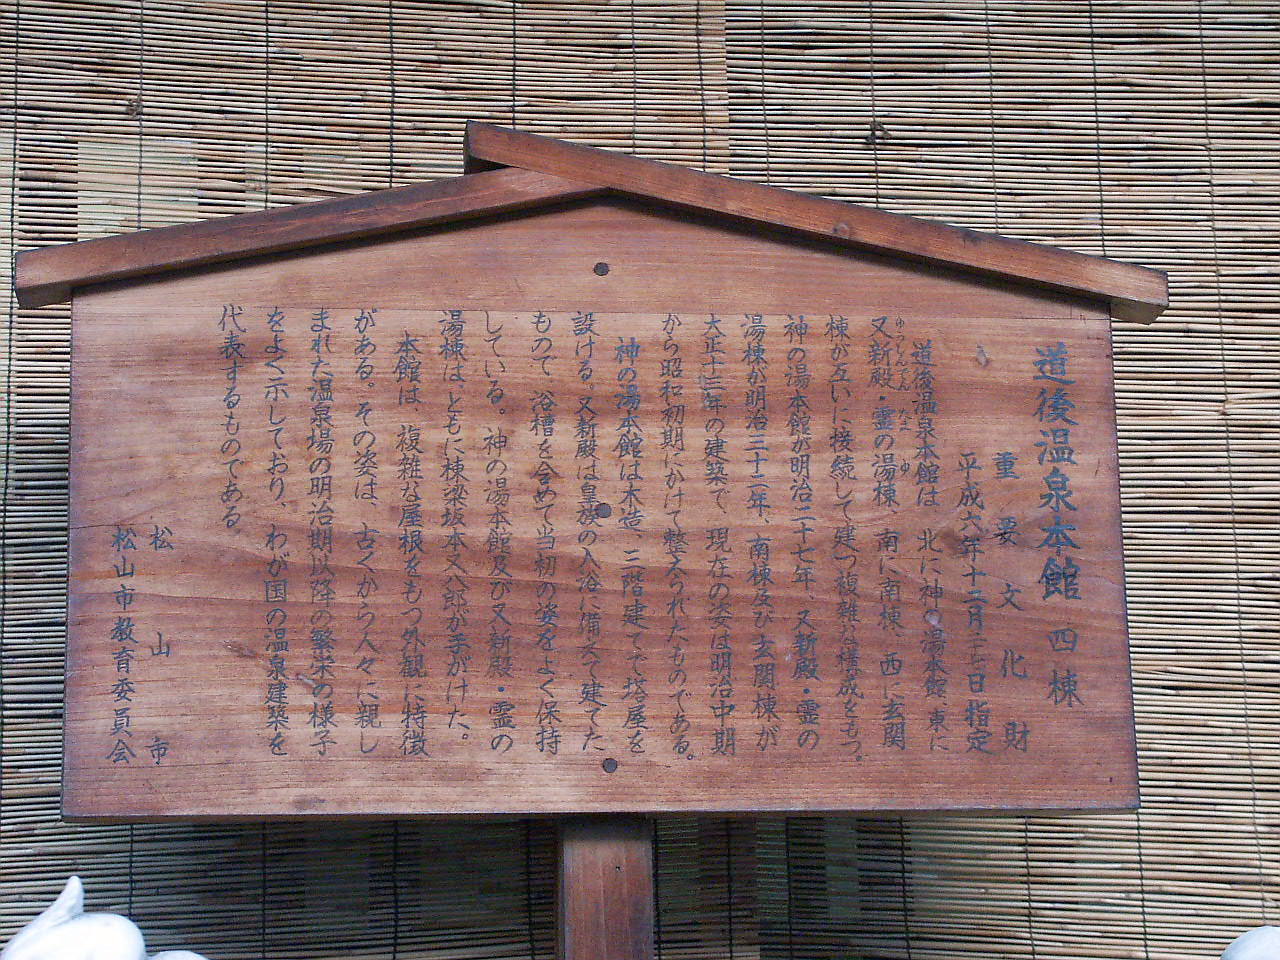 道後温泉本館 四棟
重要文化財
平成六年十二月二十七日指定
道後温泉本館は、北に神の湯本館、東に
又新殿・霊の湯棟、南に南棟、西に玄関
ゆうしんでん たま ゆ
棟が互いに接続して建つ複雑な構成をもつ。
神の湯本館が明治二十七年、又新殿・霊の
湯棟が明治三十二年、南棟及び玄関棟が
大正十三年の建築で、現在の姿は明治中期
から昭和初期にかけて整えられたものである。
神の湯本館は木造、三階建てで塔屋を
設ける。又新殿は皇族の入浴に備えて建てた
もので、浴槽を含めて当初の姿をよく保持
している。神の湯本館及び又新殿・霊の
湯棟は、ともに棟梁坂本又八郎が手がけた。
本館は、複雑な屋根をもつ外観に特徴
がある。その姿は、古くから人々に親し
まれた温泉場の明治期以降の繁栄の様子
をよく示しており、わが国の温泉建築を
代表するものである。
松山市
松山市教育委員会